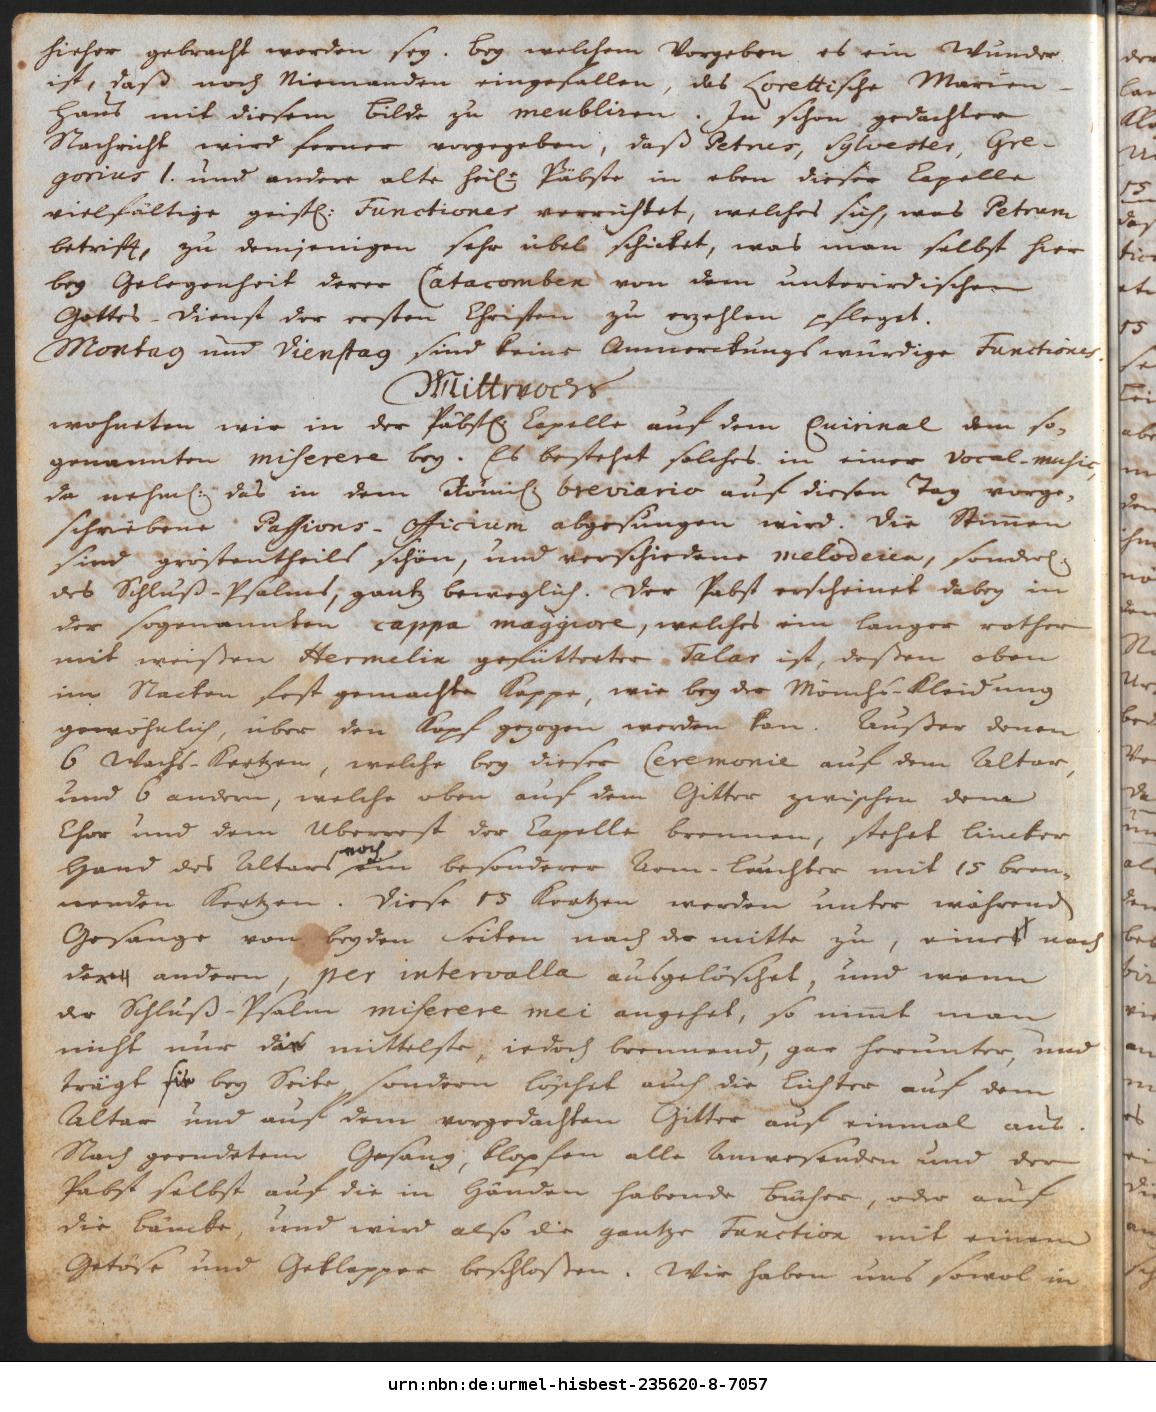 hieher gebracht worden sey. bey welchem Vorgeben es ein Wunder
ist, daß noch Niemanden eingefallen, das Lorettische Marien-
Haus mit diesem Bilde zu meubliren. In schon gedachter
Nachricht wird ferner vorgegeben, daß Petrus, Sylvester, Gre-
gorius 1. und andere alte heil. Päbste in eben dieser Capelle
vielfältige geistl: Functiones verrichtet, welches sich, was Petrum
betrifft, zu demjenigen sehr übel schicket, was man selbst hier
bey Gelegenheit derer Catacomben von dem unterirdischen
Gottes-Dienst der ersten Christen zu erzehlen pfleget.
Montag und Dienstag sind keine Anmerckungswürdige Functiones.
Mittwochs
wohneten wir in der Päbstl: Capelle auf dem Quirinal dem so-
genannten miserere bey. Es bestehet solches in einer Vocal-music,
da nehml: das in dem Römis: breviario auf diesen Tag vorge-
schriebene Passions-Officium abgesungen wird. Die Stimen
sind gröstentheils schön, und verschiedene melodeien, sonderl:
des Schluß-Psalms, gantz beweglich. Der Pabst erscheinet dabey in
der sogenannten cappa maggiore, welches ein langer rother
mit weißen Hermelin gefütterter Talar ist, deßen oben
im Nacken fest gemachte Kappe, wie bey der Mönchs-Kleidung
gewöhnlich, über den Kopf gezogen werden kan. Außer denen
6 Wachs-Kertzen, welche bey dieser Ceremonie auf dem Altar,
und 6 andern, welche oben auf dem Gitter zwischen dem
Chor und dem Uberrest der Capelle brennen, stehet lincker
Hand des Altars noch ein besonderer Arm-Leuchter mit 15 bren-
nenden Kertzen. Diese 15 Kertzen werden unter während
Gesange von beyden Seiten nach der mitte zu, eine nach
der andern, per intervalla ausgelöschet, und wenn
der Schluß-Psalm miserere mei angehet, so nimt man
nicht nur die mittelste, iedoch brennend, gar herunter, und
trägt sie bey Seite, sondern löschet auch die Lichter auf dem
Altar und auf dem vorgedachten Gitter auf einmal aus.
Nach geendetem Gesang, klopfen alle Anwesenden und der
Pabst selbst auf die in Händen habende Bücher, oder auf
die Bäncke, und wird also die gantze Function mit einem
Getöse und Geklapper beschloßen. Wir haben uns sowol in
urn:nbn:de:urmel-hisbest-235620-8-7057